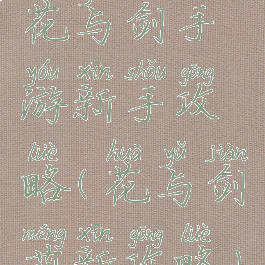 花与剑手
yóu xīn shǒu gōng
游新手攻
lüè huā yǔ jiàn
略(花与剑
xīn gōng lüè
新 略)